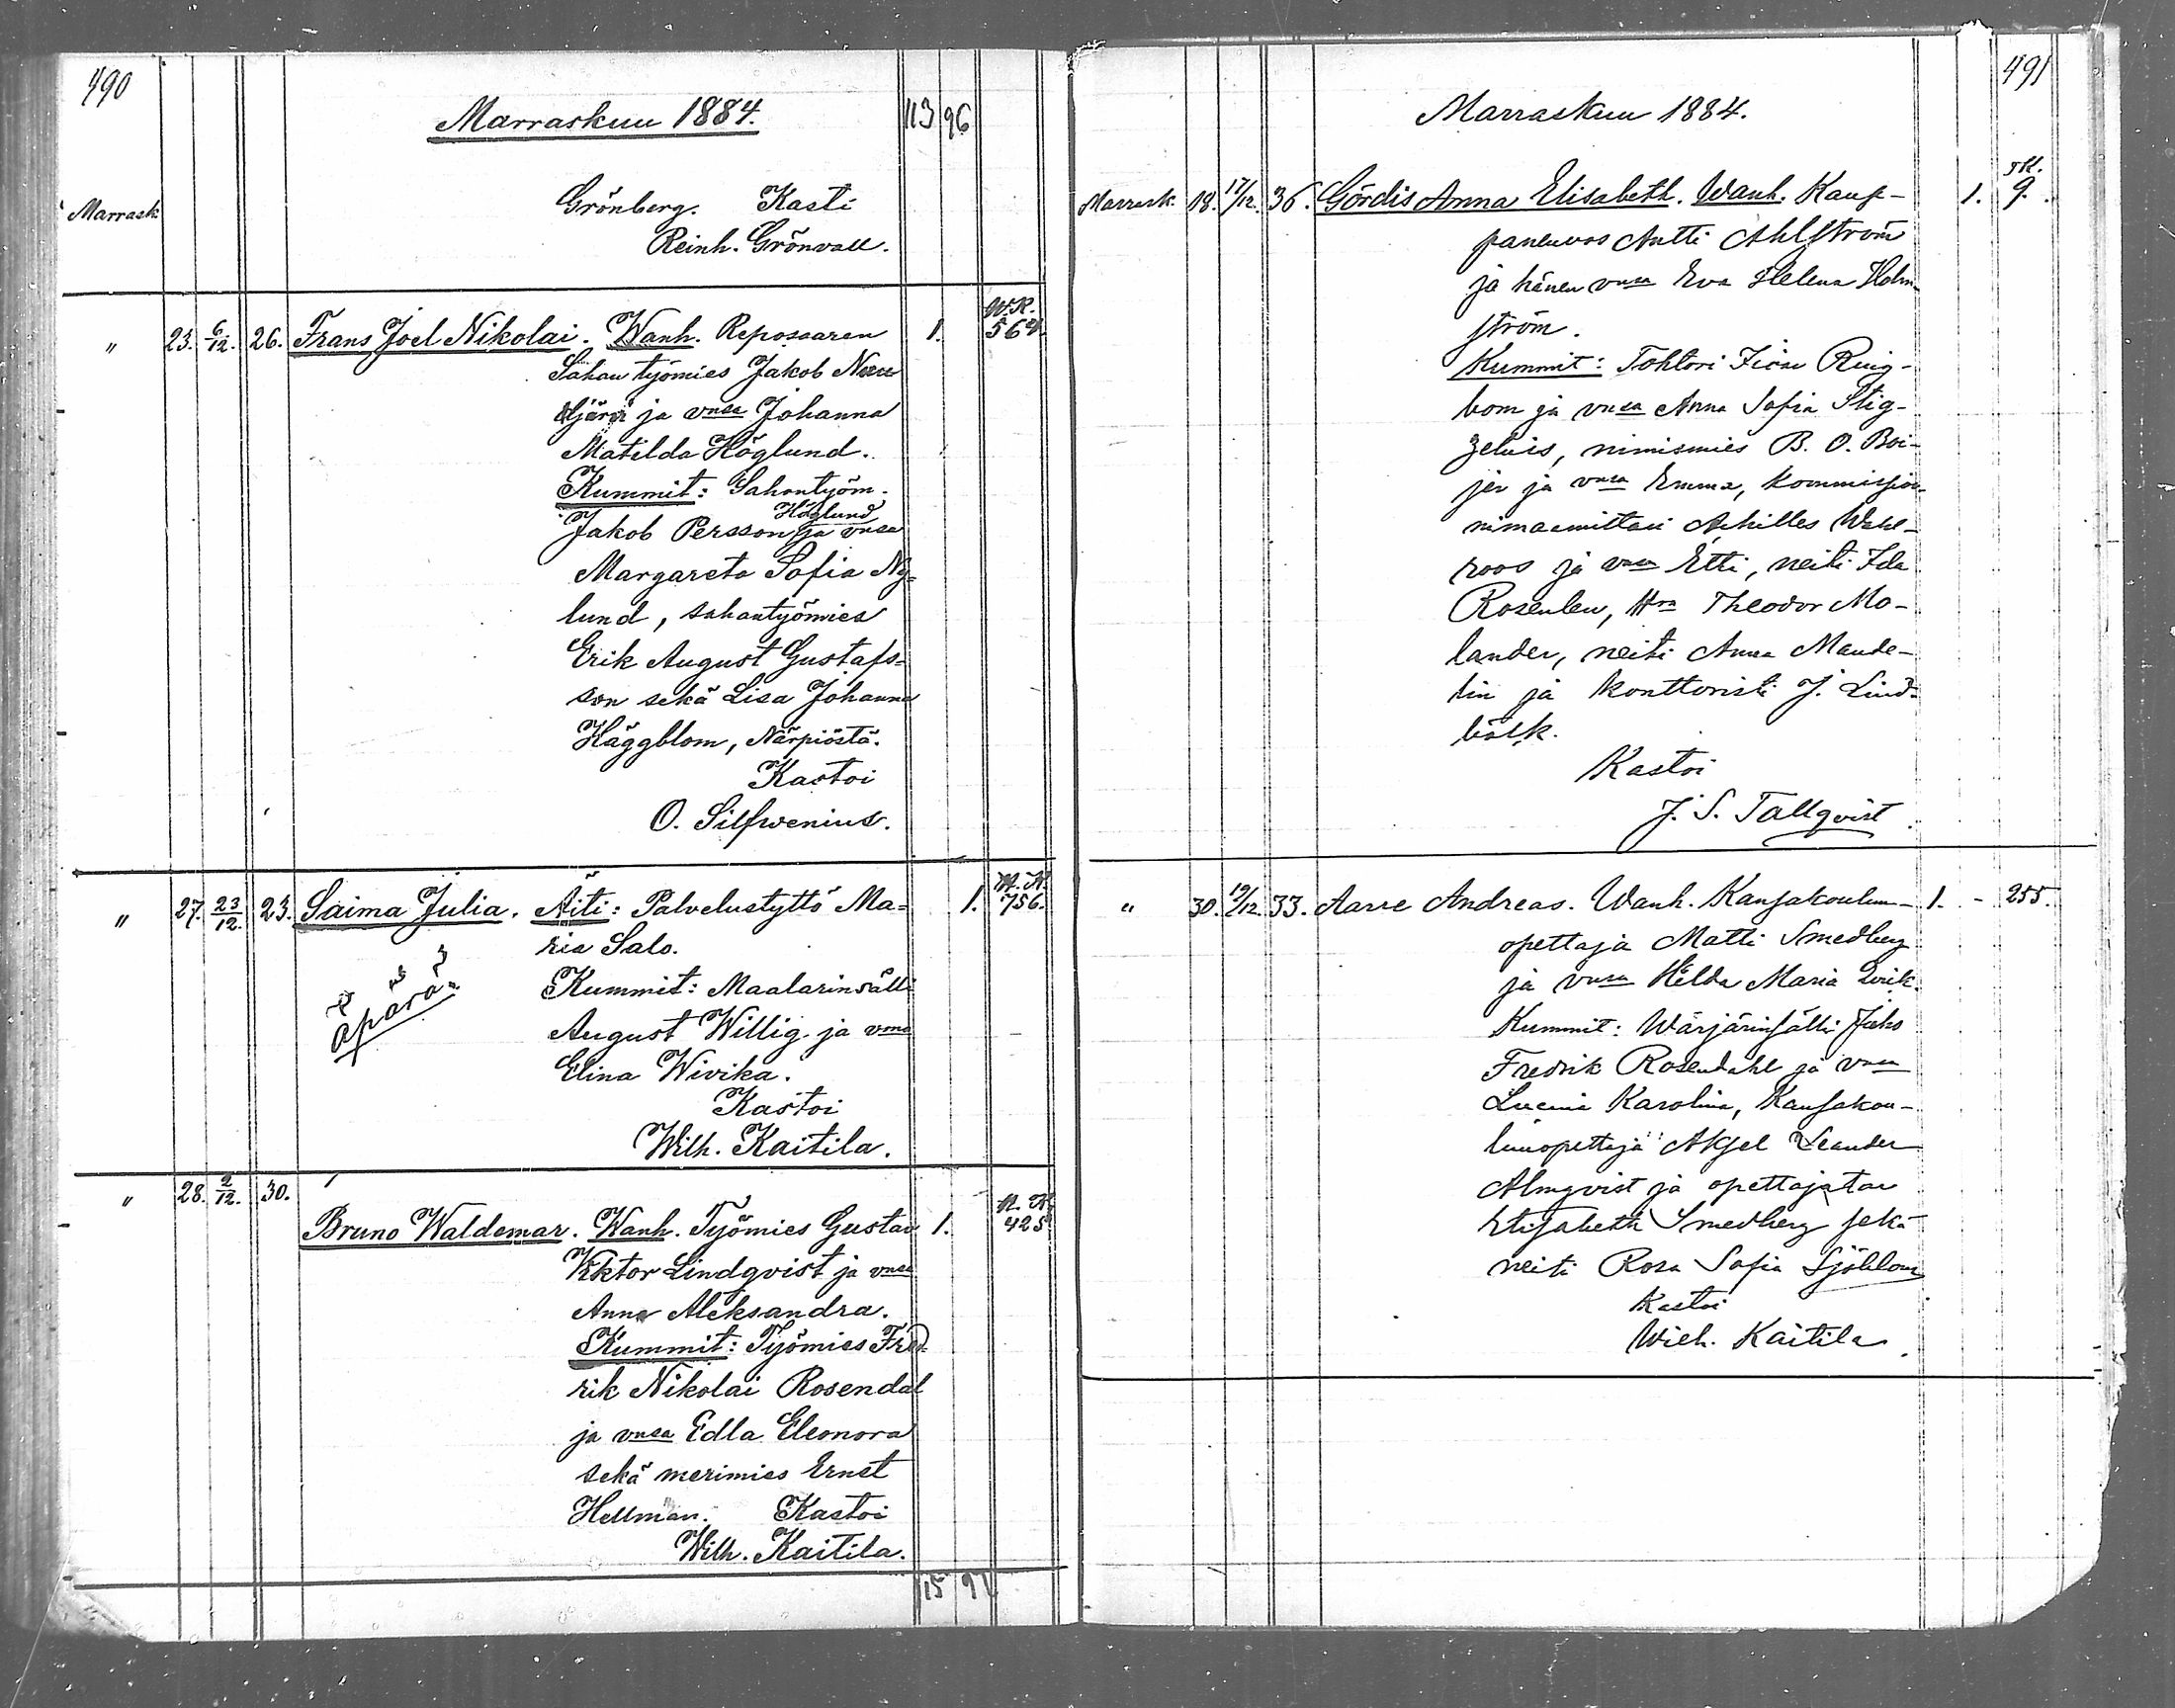 490
Marraskuu 1884.
113 96
Marrask
Grönberg. Kasti
Reinh. Grönvall.
" 23. 6/12. 26. Frans Joel Nikolai. Wanh. Reposaaren 1. W.R. 564.
Sahan työmies Jakob
ja vmsa Johanna
Matilda Höglund.
Kummit: Sahantyöm.
Höglund
Jakob Persson ja vmsa
Margareta Sofia Ny=
lund, sahantyömies
Erik August Gustafs=
son sekä Lisa Johanna
Häggblom, Närpiöstä.
Kastoi
O. Silfwenius.
" 27. 23/12. 23. Saima Julia. Äiti: Palvelustyttö Ma= 1. 756.
ria Salo.
äpärä
Kummit: Maalarinsälli
August Willig ja vmo
Elina Wivika.
Kastoi
Wilh. Kaitila.
" 28. 2/12. 30.
Bruno Waldemar. Wanh. Työmies Gustav 1. 425
Viktor Lindqvist ja vmsa
Anna Aleksandra.
Kummit: Työmies Fred=
rik Nikolai Rosendal
ja vmsa Edla Eleonora
sekä merimies Ernst
Hellman. Kastoi
Wilh. Kaitila.
15 97
491
Marraskuu 1884.
Marrask. 18. 17/12. 36. Gördis Anna Elisabeth. Wanh. Kaup- 1. 9.
paneuvos Antti Ahlström
ja hänen vmsa Eva Helena Holm-
ström.
Kummit: Tohtori Ring-
bom ja vmsa Anna Sofia Stig-
zelius, nimismies B. O. Boi-
jer ja vmsa Emma, kommission-
nimaamittari Achilles Wahl-
roos ja vmsa Etti, neiti Ida
Rosenlew, Hra Theodor Mo-
lander, neiti Anna Mande-
lin ja konttoristi J. Lind-
bäck.
Kastoi
J. S. Tallqvist.
" 30. 33. Aarre Andreas. Wanh. Kansakoulun- 1. - 255.
opettaja Matti Smedberg
ja vmsa Hilda Maria Qvik.
Kummit: Wärjärinsälli
Fredrik Rosendahl ja vmsa
Karolina, Kansakou-
lunopettaja Aksel Leander
Almqvist ja opettajatar
Elisabeth Smedberg sekä
neiti Rosa Sofia Sjöblom
Kastoi
Wilh. Kaitila.